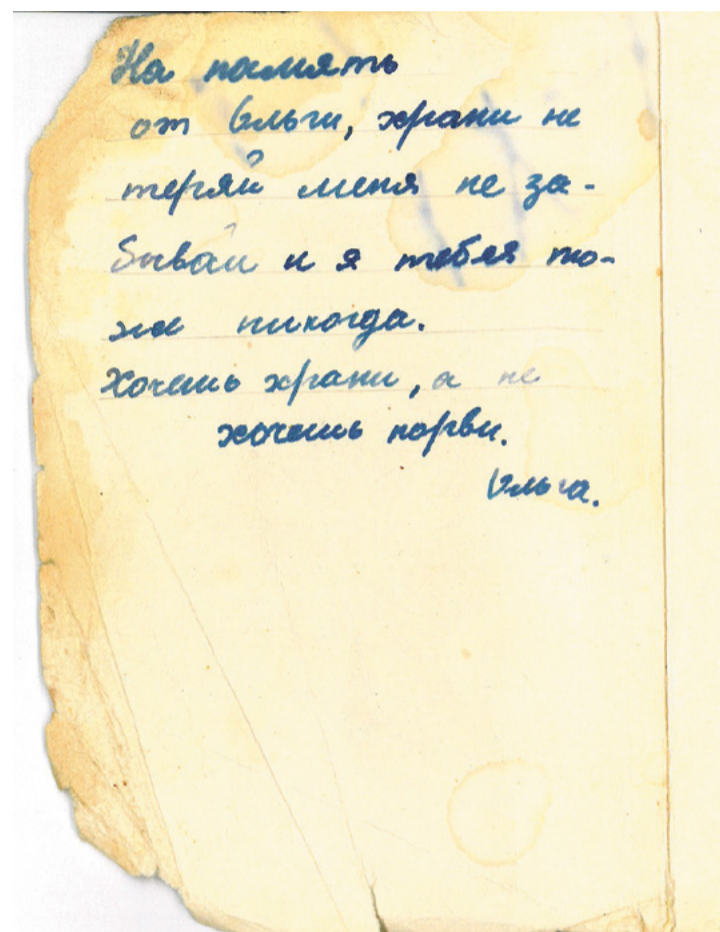 На память
от Ольги, храни не
теряй меня не за-
бывай и я тебя то-
же никогда.
Хочешь храни, а не
хочешь порви.
Ольга.